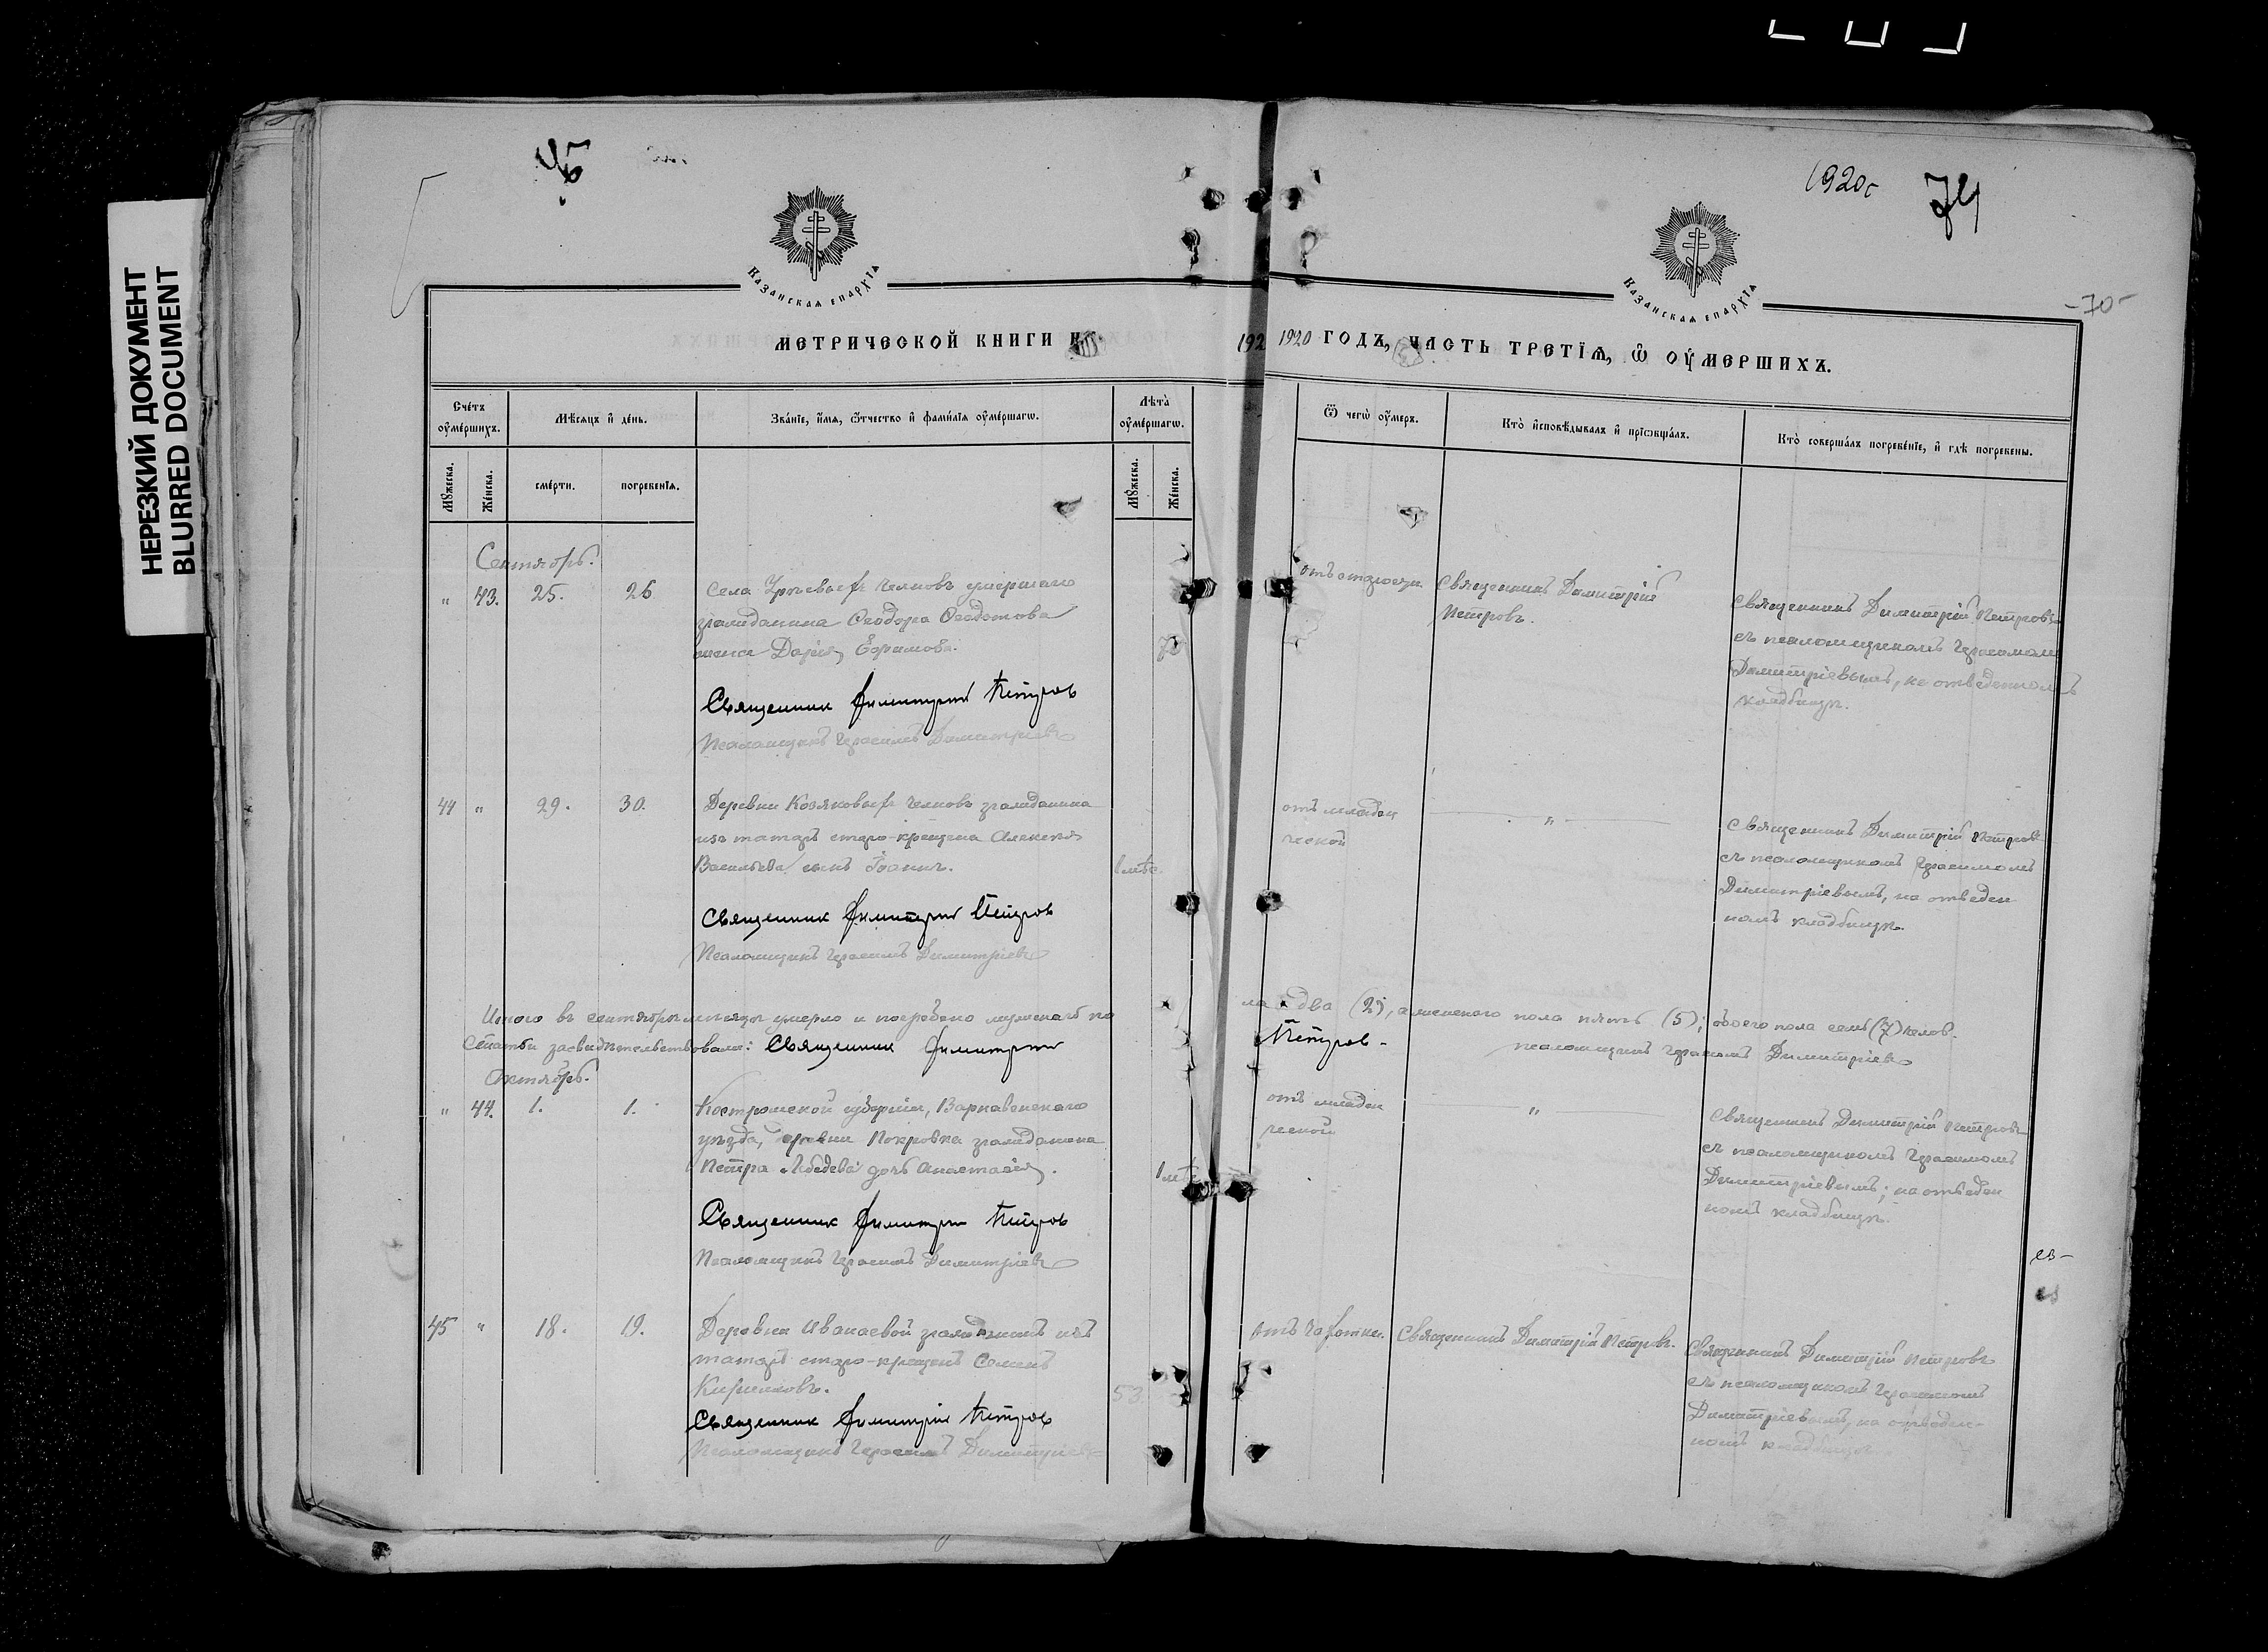 НЕРЕЗКИЙ ДОКУМЕНТ
BLURRED DOCUMENT
1920 г
74
-70-
КАЗАНСКАЯ ЕПАРХІЯ
КАЗАНСКАЯ ЕПАРХІЯ
МЕТРИЧЕСКОЙ КНИГИ
192
1920 ГОДЪ, ЧАСТЬ ТРЕТІЯ, Ѡ ОУМЕРШИХЪ.
Счетъ оумершихъ.
Мѣсяцъ и день.
Званіе, имя, ѿчество и фамилія оумершагѡ.
Лѣта оумершагѡ.
Ѿ чегѡ оумеръ.
Кто исповѣдывалъ и пріѡбщалъ.
Кто совершалъ погребеніе, и гдѣ погребены.
Мꙋжеска.
Женска.
смерти.
погребенія.
Мꙋжеска.
Женска.
Сентябрь.
" 43. 25. 26
Села Челновъ умершаго
гражданина Ѳеодора Ѳеодотова
жена Дарія Ефимова.
Священник Димитрий Петров
Псаломщикъ Герасимъ Димитріевъ
Священникъ Димитрій
Петровъ.
Священникъ Димитрій Петровъ
съ псаломщикомъ Герасимомъ
Димитріевымъ, на отведенномъ
кладбищѣ.
44 " 29. 30.
Деревни Козяковыхъ Челновъ гражданина
изъ татаръ старо-крещена Алексѣя
Васильева сынъ Іоаннъ.
1 мѣс.
Священник Димитрий Петров
Псаломщикъ Герасимъ Димитріевъ
отъ младен
ческой
"
Священникъ Димитрій Петровъ
съ псаломщикомъ Герасимомъ
Димитріевымъ, на отведен
номъ кладбищѣ.
Итого въ сентябрѣ мѣсяцѣ умерло и погребено мужескаго по
ла два (2), а женскаго пола пять (5); обоего пола семь (7) челов.
Статьи засвидѣтельствовали: Священник Димитрий
Петров-
псаломщикъ Герасимъ Димитріевъ
Октябрь.
" 44. 1. 1.
Костромской губерніи, Варнавенскаго
уѣзда, деревни Покровка гражданина
Петра Лебедева дочь Анастасія.
Священник Димитрий Петров
Псаломщикъ Герасимъ Димитріевъ
отъ младен
ческой
"
Священникъ Димитрій Петровъ
съ псаломщикомъ Герасимомъ
Димитріевымъ; на отведен
номъ кладбищѣ.
45 " 18. 19.
Деревни Иванаевой гражданинъ изъ
татаръ старо-крещенъ Семенъ
Кирилловъ.
53
Священник Димитрий Петров
Псаломщикъ Герасимъ Димитріевъ
отъ чахотки.
Священникъ Димитрій Петровъ.
Священникъ Димитрій Петровъ
съ псаломщикомъ Герасимомъ
Димитріевымъ, на отведен-
номъ кладбищѣ